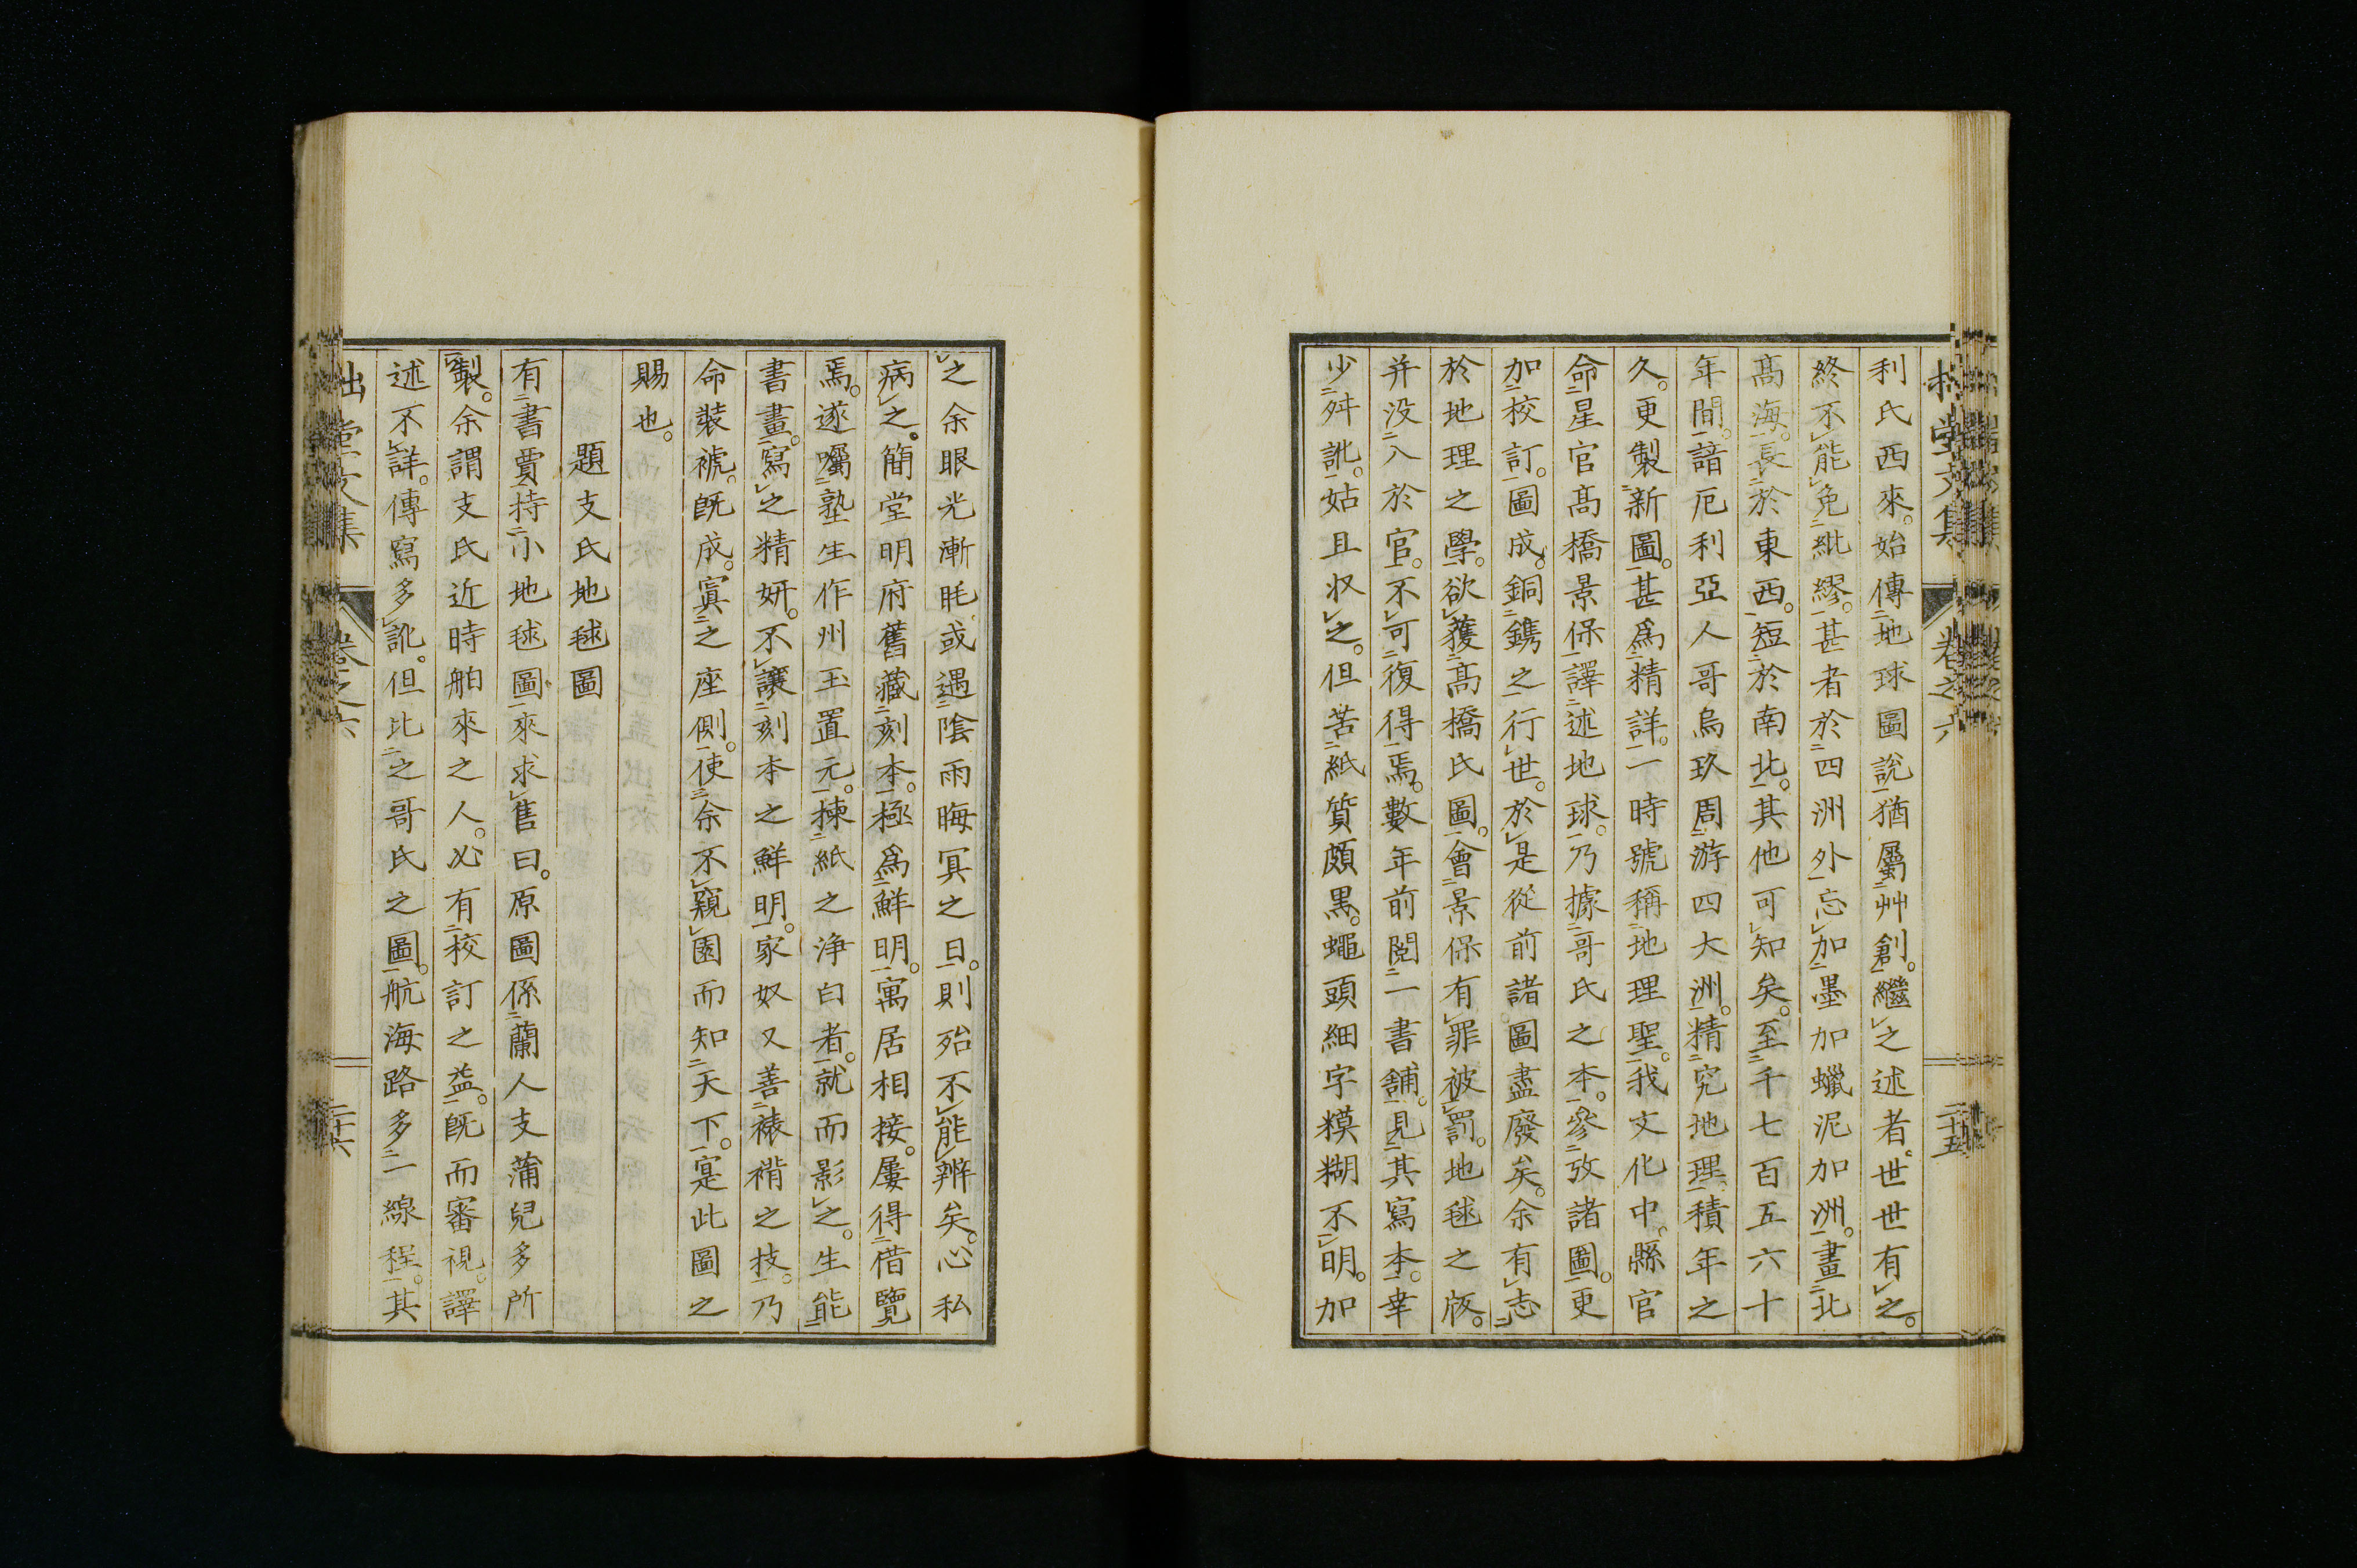 拙堂文集 卷之六 二十五
利氏西來。始傳地球圖說猶屬艸創。繼之述者。世世有之。
終不能免紕繆。甚者於四洲外忘加墨加蠟泥加洲。畫北
髙海長於東西。短於南北。其他可知矣。至千七百五六十
年間。諳厄利亞人哥烏玖周游四大洲。精究地理積年之
久。更製新圖。甚爲精詳。一時號稱地理聖。我文化中。縣官
命星官髙橋景保譯述地球。乃據哥氏之本。參攷諸圖。更
加校訂。圖成。銅鐫之行世。於是從前諸圖盡廢矣。余有志
於地理之學。欲獲髙橋氏圖。會景保有罪被罰。地毬之版。
并没入於官。不可復得焉。數年前閲一書舖。見其寫本。幸
少舛訛。姑且収之。但苦紙質頗黒。蠅頭細字糢糊不明。加
之余眼光漸眊或遇陰雨晦冥之日。則殆不能辨矣。心私
病之。簡堂明府舊藏刻本。極爲鮮明。寓居相接。屢得借覽
焉。遂囑塾生作州玉置元。揀紙之浄白者。就而影之。生能
書畫。寫之精妍。不讓刻本之鮮明。家奴又善裱褙之技。乃
命裝褫。既成。寘之座側。使余不窺園而知天下。寔此圖之
賜也。
題支氏地毬圖
有書賈持小地毬圖來求售曰。原圖係蘭人支蒲兒多所
製。余謂支氏近時舶來之人。必有校訂之益。既而審視。譯
述不詳。傳寫多訛。但比之哥氏之圖。航海路多一線程。其
拙堂文集 卷之六 二十六